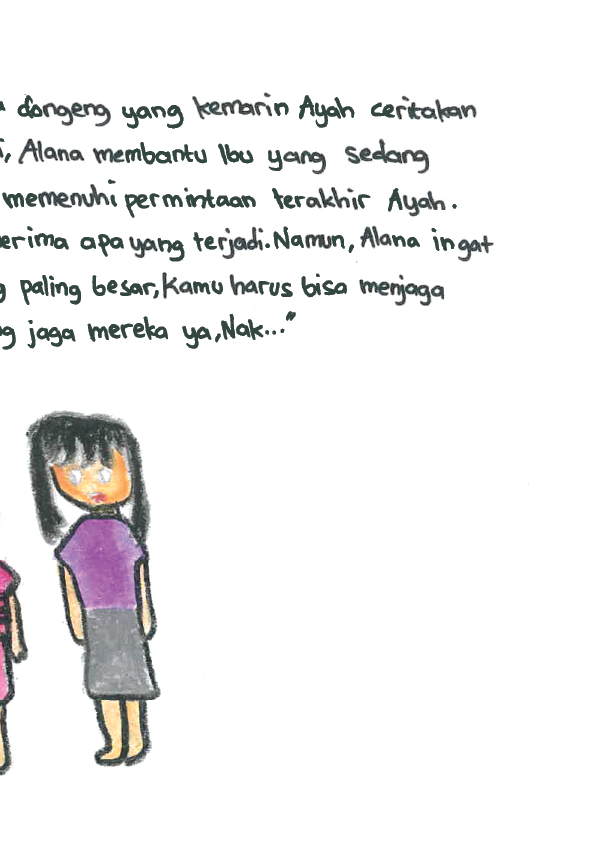 dongeng yang kemarin Ayah ceritakan
, Alana membantu Ibu yang sedang
memenuhi permintaan terakhir Ayah.
erima apa yang terjadi. Namun, Alana ingat
g paling besar, kamu harus bisa menjaga
g jaga mereka ya, Nak..."